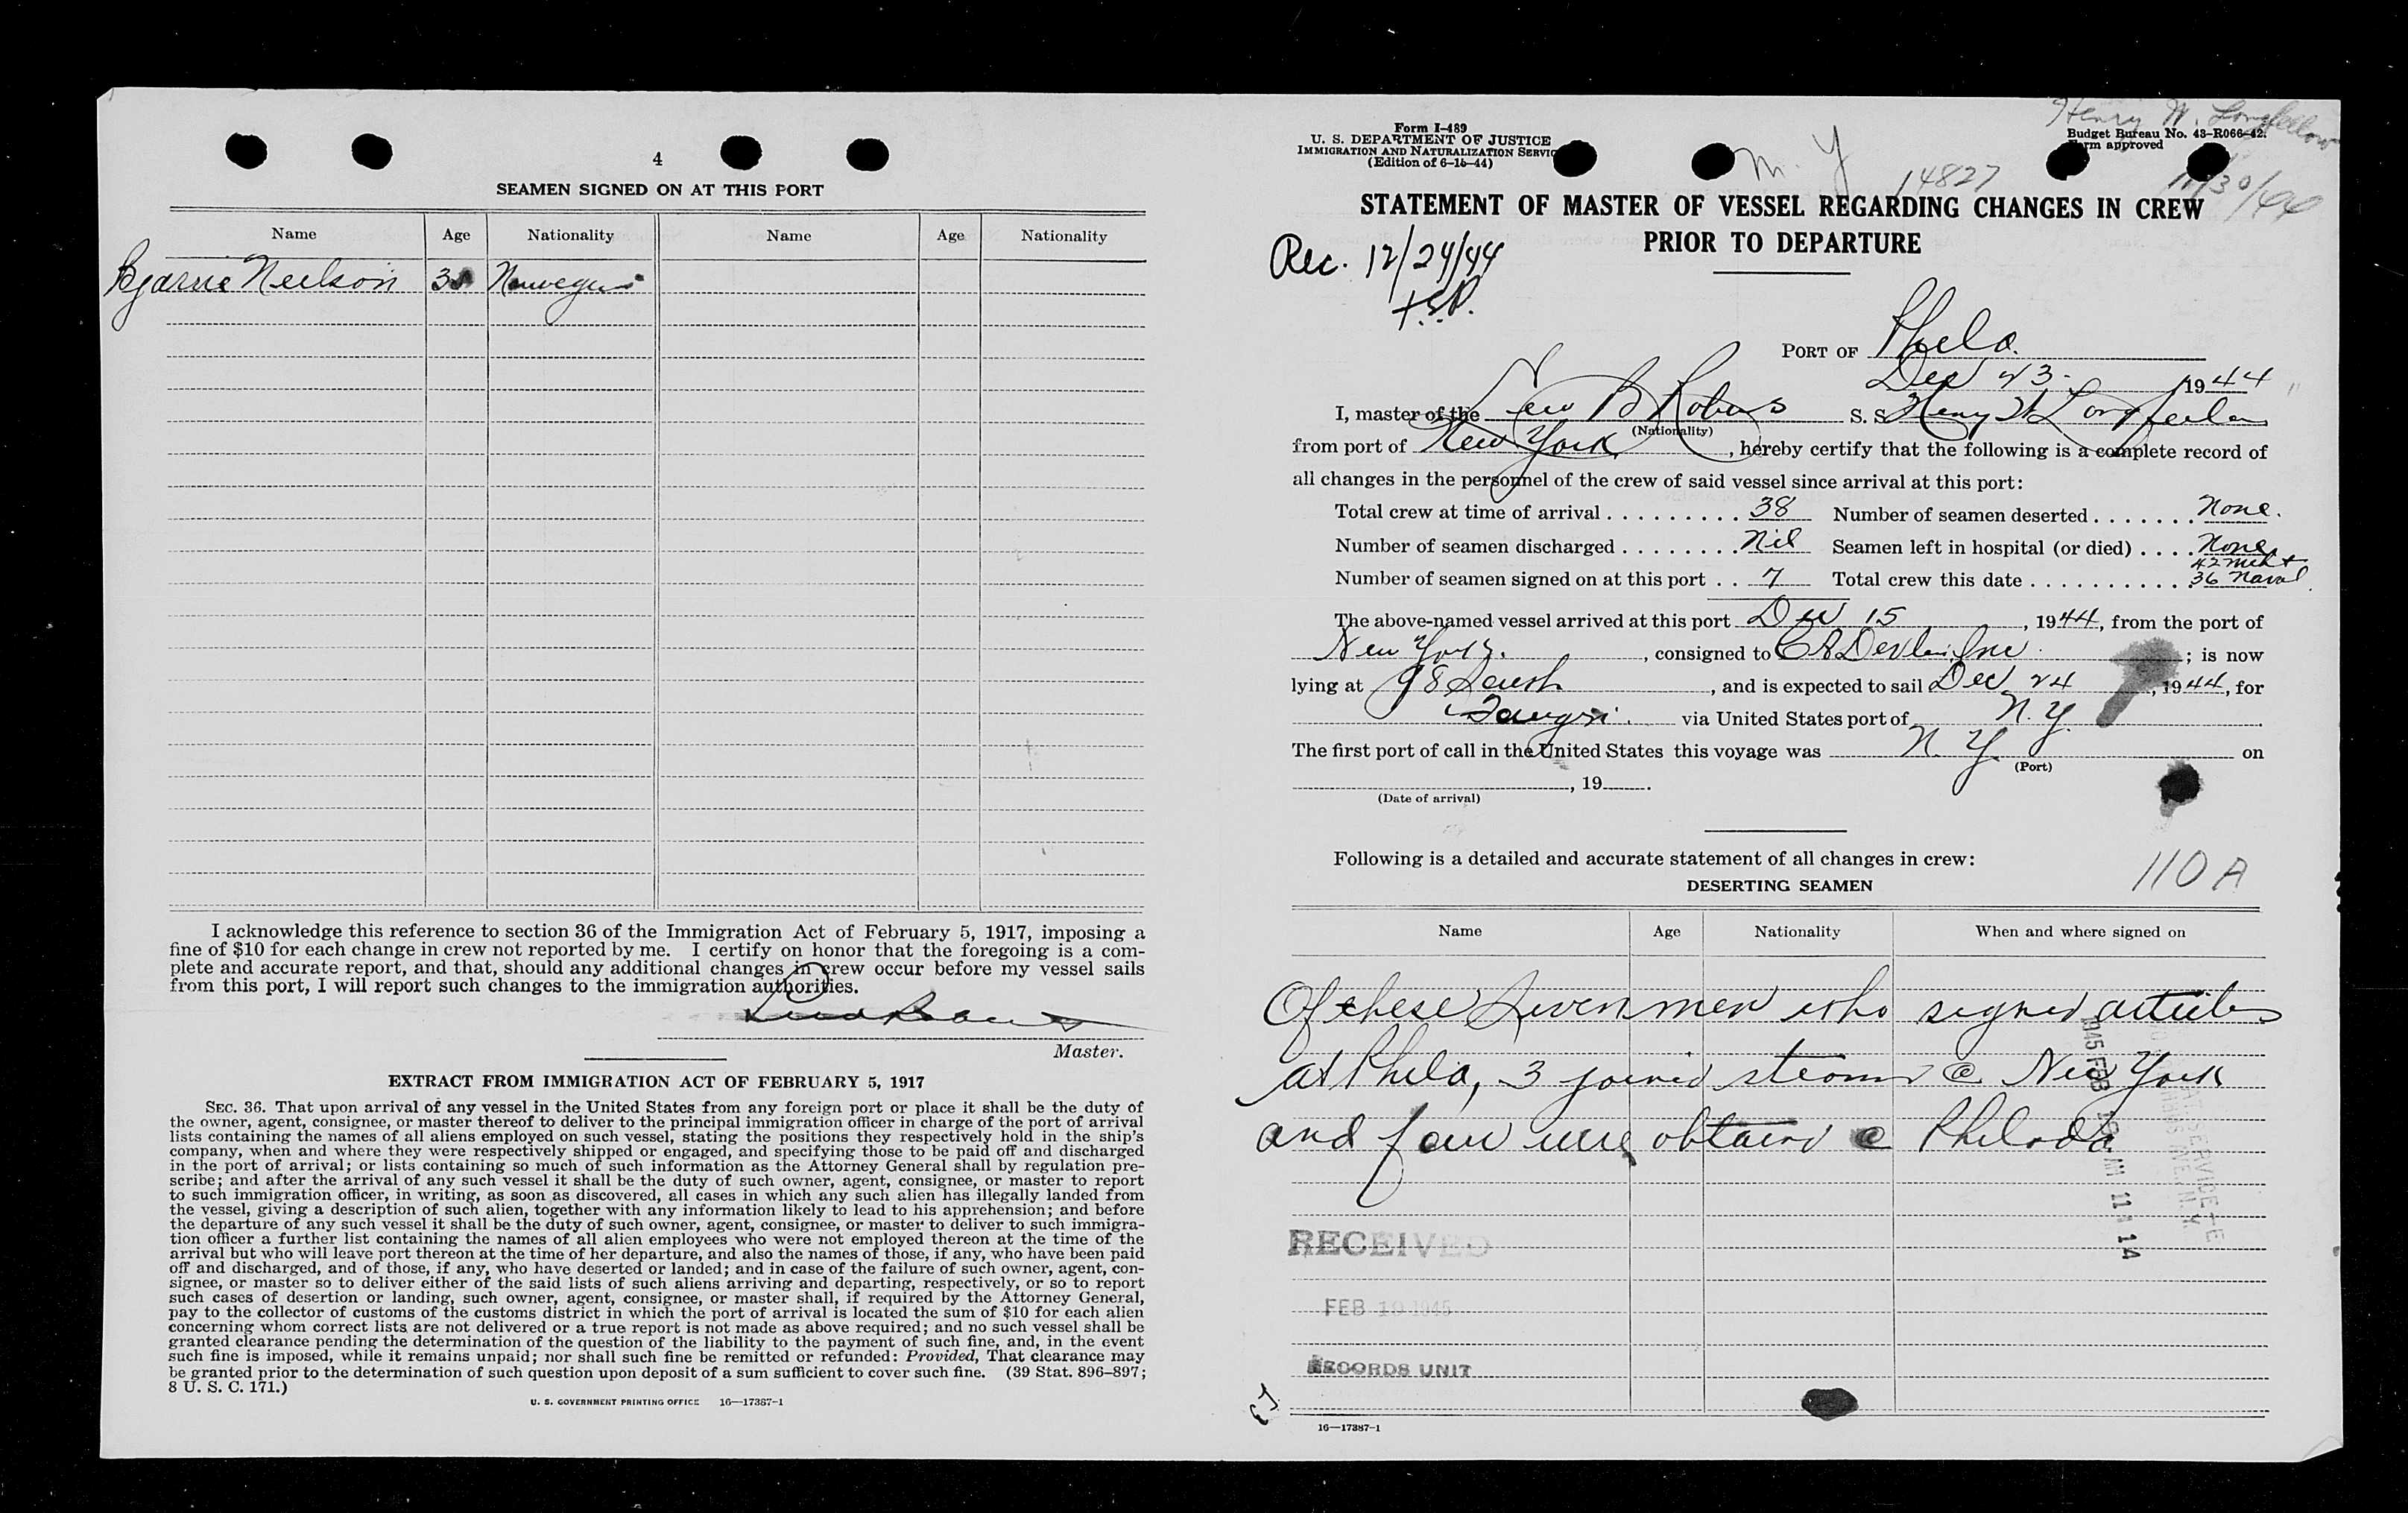 4
SEAMEN SIGNED ON AT THIS PORT
Name Age Nationality Name Age Nationality
Bjarne Neilson 38 Norwegian
I acknowledge this reference to section 36 of the Immigration Act of February 5, 1917, imposing a
fine of $10 for each change in crew not reported by me. I certify on honor that the foregoing is a com-
plete and accurate report, and that, should any additional changes in crew occur before my vessel sails
from this port, I will report such changes to the immigration authorities.
Master.
EXTRACT FROM IMMIGRATION ACT OF FEBRUARY 5, 1917
SEC. 36. That upon arrival of any vessel in the United States from any foreign port or place it shall be the duty of
the owner, agent, consignee, or master thereof to deliver to the principal immigration officer in charge of the port of arrival
lists containing the names of all aliens employed on such vessel, stating the positions they respectively hold in the ship's
company, when and where they were respectively shipped or engaged, and specifying those to be paid off and discharged
in the port of arrival; or lists containing so much of such information as the Attorney General shall by regulation pre-
scribe; and after the arrival of any such vessel it shall be the duty of such owner, agent, consignee, or master to report
to such immigration officer, in writing, as soon as discovered, all cases in which any such alien has illegally landed from
the vessel, giving a description of such alien, together with any information likely to lead to his apprehension; and before
the departure of any such vessel it shall be the duty of such owner, agent, consignee, or master to deliver to such immigra-
tion officer a further list containing the names of all alien employees who were not employed thereon at the time of the
arrival but who will leave port thereon at the time of her departure, and also the names of those, if any, who have been paid
off and discharged, and of those, if any, who have deserted or landed; and in case of the failure of such owner, agent, con-
signee, or master so to deliver either of the said lists of such aliens arriving and departing, respectively, or so to report
such cases of desertion or landing, such owner, agent, consignee, or master shall, if required by the Attorney General,
pay to the collector of customs of the customs district in which the port of arrival is located the sum of $10 for each alien
concerning whom correct lists are not delivered or a true report is not made as above required; and no such vessel shall be
granted clearance pending the determination of the question of the liability to the payment of such fine, and, in the event
such fine is imposed, while it remains unpaid; nor shall such fine be remitted or refunded: Provided, That clearance may
be granted prior to the determination of such question upon deposit of a sum sufficient to cover such fine. (39 Stat. 896-897;
8 U. S. C. 171.)
U. S. GOVERNMENT PRINTING OFFICE 16—17387-1
Henry W. Longfellow
Form I-489
U. S. DEPARTMENT OF JUSTICE
IMMIGRATION AND NATURALIZATION SERVIC
(Edition of 6-15-44)
Budget Bureau No. 43-R066-42.
Form approved
14827
11/30/44
STATEMENT OF MASTER OF VESSEL REGARDING CHANGES IN CREW
PRIOR TO DEPARTURE
Rec. 12/24/44
PORT OF Phila.
Dec 23 1944
I, master of the Lew B Robins S. S. Henry W Longfellow
(Nationality)
from port of New York, hereby certify that the following is a complete record of
all changes in the personnel of the crew of said vessel since arrival at this port:
Total crew at time of arrival 38 Number of seamen deserted None.
Number of seamen discharged Nil Seamen left in hospital (or died) None
Number of seamen signed on at this port 7 Total crew this date 42 Mcht
36 Naval
The above-named vessel arrived at this port Dec 15, 1944, from the port of
New York, consigned to Devlin Inc.; is now
lying at 98 South, and is expected to sail Dec 24, 1944, for
via United States port of N.Y.
The first port of call in the United States this voyage was N. Y. on
(Port)
, 19 .
(Date of arrival)
Following is a detailed and accurate statement of all changes in crew:
110 A
DESERTING SEAMEN
Name Age Nationality When and where signed on
Of these seven men who signed articles
at Phila, 3 joined steamer @ New York
and four were obtained @ Philada
1945 FEB 10 AM 11 14
RECEIVED
FEB 10 1945
RECORDS UNIT
16—17387-1